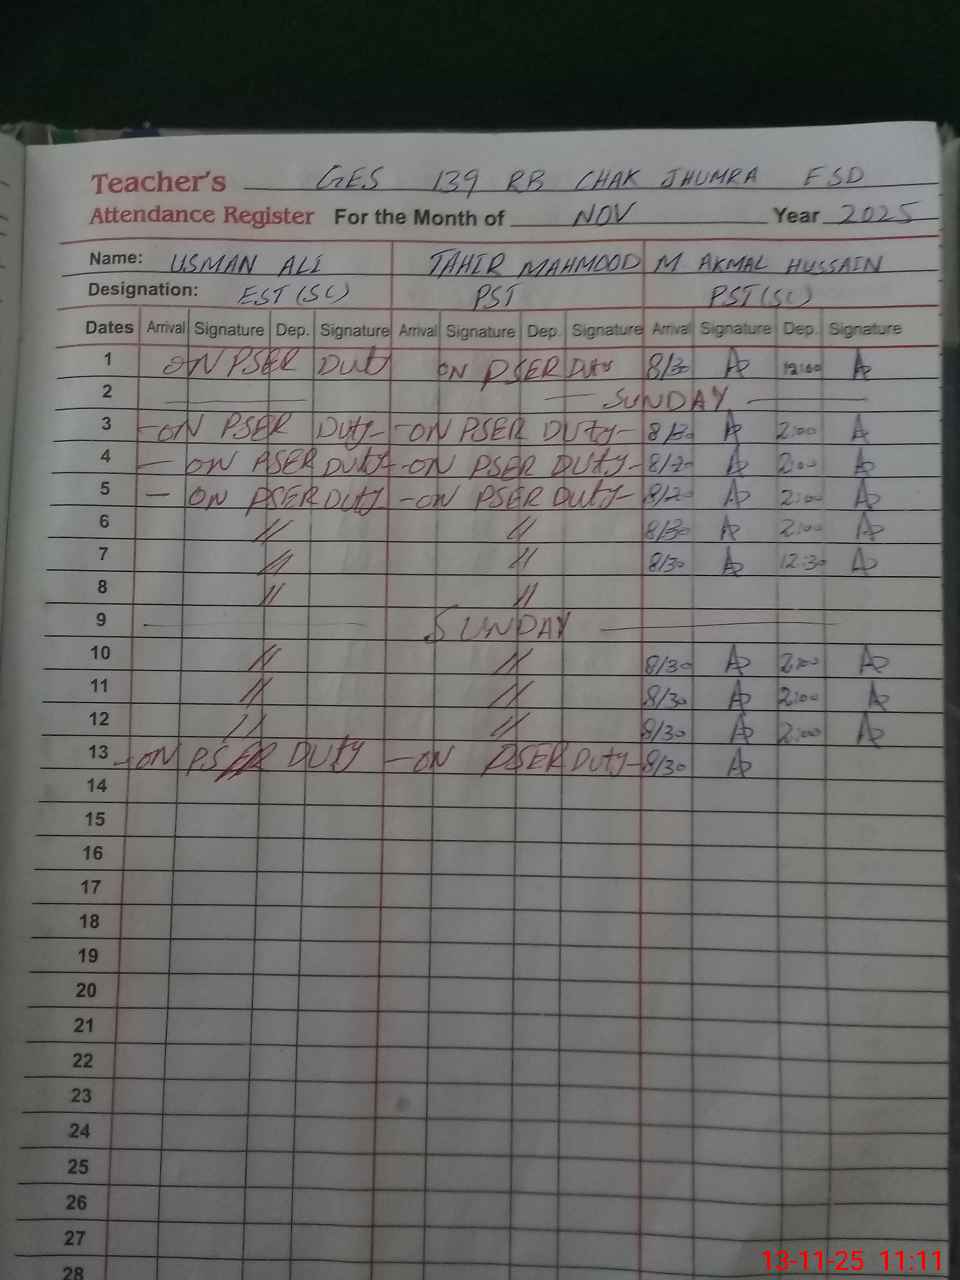 Teacher's GES 139 RB CHAK JHUMRA FSD
Attendance Register For the Month of NOV Year 2025
Name: USMAN ALI TAHIR MAHMOOD M AKMAL HUSSAIN
Designation: EST (SC) PST PST (SC)
Dates Arrival Signature Dep. Signature Arrival Signature Dep. Signature Arrival Signature Dep. Signature
1 ON PSER DUTY ON PSER DUTY 8/30 12:00
2 SUNDAY
3 -ON PSER DUTY- -ON PSER DUTY- 8/30 2:00
4 - ON PSER DUTY- -ON PSER DUTY- 8/30 2:00
5 - ON PSER DUTY -ON PSER DUTY- 8/20 2:00
6 // // 8/30 2:00
7 // // 8/30 12:30
8 // //
9 SUNDAY
10 // // 8/30 2:00
11 // // 8/30 2:00
12 // // 8/30 2:00
13 -ON PSER DUTY -ON PSER DUTY- 8/30
14
15
16
17
18
19
20
21
22
23
24
25
26
27
28
13-11-25 11:11